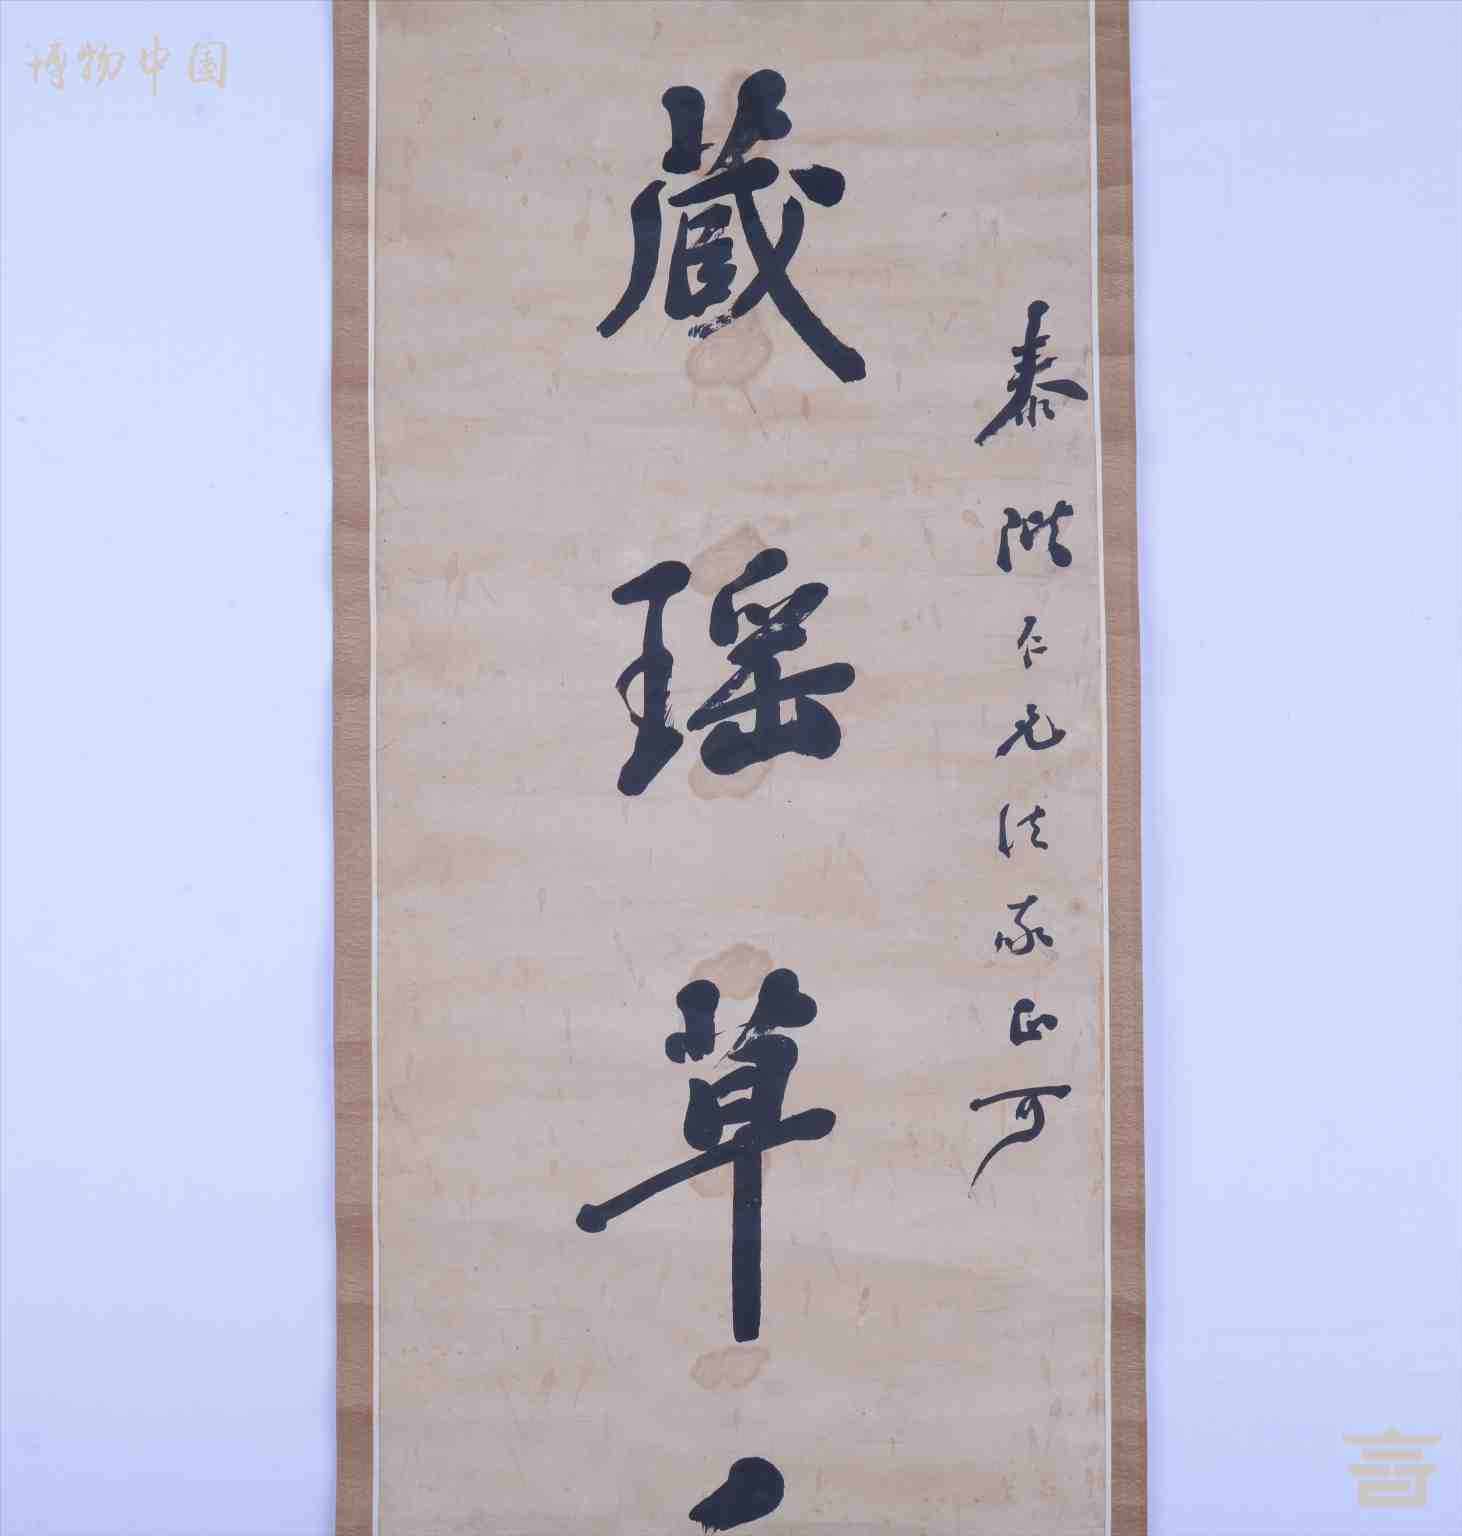 博物中国
泰階仁兄法家正可
藏瑶草